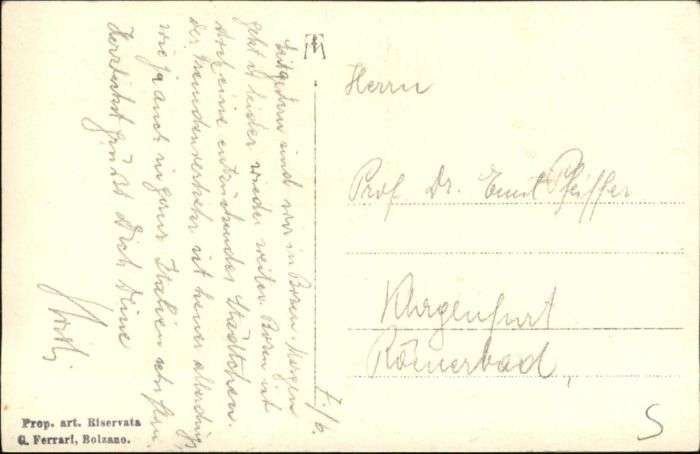 7/6.
Seit gestern sind wir in Bozen. Morgen
geht es leider wieder weiter. Bozen ist
doch eine entzückendes Städtchen.
der Fremdenverkehr ist heuer allerdings
wie ja auch in ganz Italien
Herzlichst grüßt Dich Deine
Herrn
Prof. Dr. Emil Pfeiffer
Klagenfurt
Römerbad,
S
Prop. art. Riservata
G. Ferrari, Bolzano.